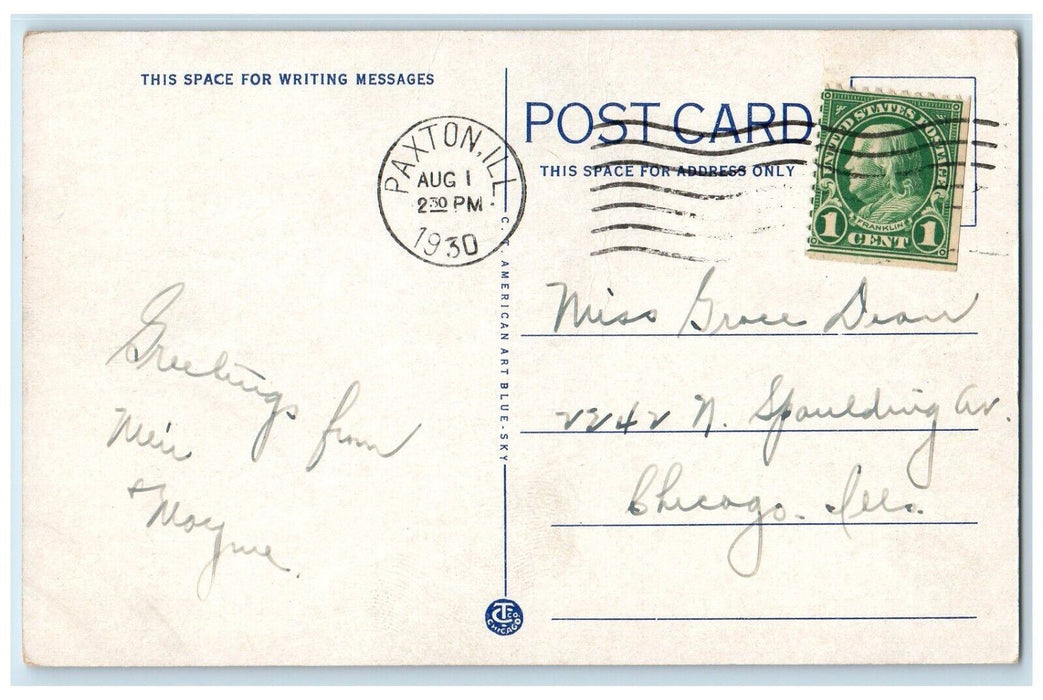 THIS SPACE FOR WRITING MESSAGES
POST CARD
THIS SPACE FOR ADDRESS ONLY
PAXTON, ILL.
AUG 1
2 30 PM
1930
UNITED STATES POSTAGE
FRANKLIN
1 CENT 1
C. T. AMERICAN ART BLUE-SKY
Greetings from
& Mayme.
Miss Grace Dean
2242 N. Spaulding Av.
Chicago. Ills.
CT CO.
CHICAGO